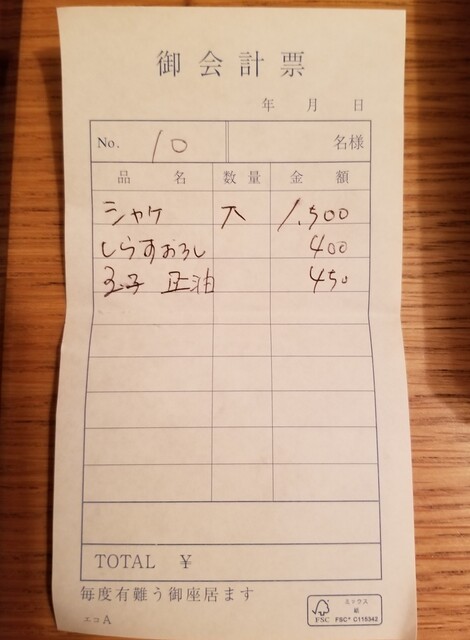 御会計票
年 月 日
No. 10 名様
品名 数量 金額
シャケ 大 1,500
しらすおろし 400
玉子 正油 450
TOTAL ¥
毎度有難う御座居ます
エコA
ミックス
紙
FSC
FSC® C115342